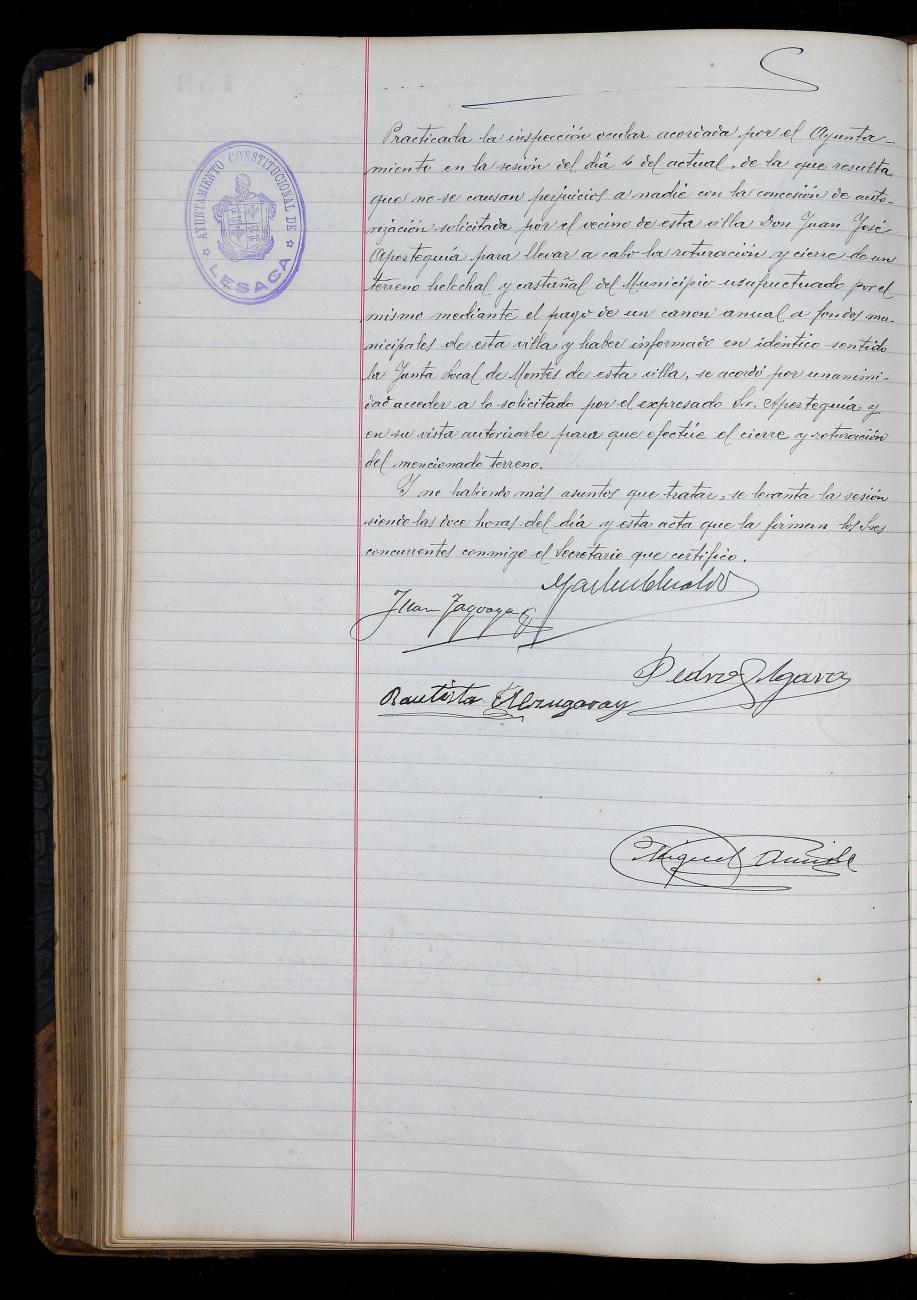 AYUNTAMIENTO CONSTITUCIONAL DE
LESACA
Practicada la inspección ocular acordada por el Ayunta-
miento en la sesión del día 4 del actual, de la que resulta
que no se causan perjuicios a nadie con la concesión de auto-
rización solicitada por el vecino de esta villa Don Juan José
Apesteguía para llevar a cabo la roturación y cierre de un
terreno helechal y castañal del Municipio usufructuado por el
mismo mediante el pago de un canon anual a fondos mu-
nicipales de esta villa y haber informado en idéntico sentido
la Junta Local de Montes de esta villa, se acordó por unanimi-
dad acceder a lo solicitado por el expresado Sr. Apesteguía y
en su vista autorizarle para que efectúe el cierre y roturación
del mencionado terreno.
Y no habiendo más asuntos que tratar, se levanta la sesión
siendo las doce horas del día y esta acta que la firman los Sres
concurrentes conmigo el Secretario que certifico.
Juan
Pedro
Bautista
Miguel